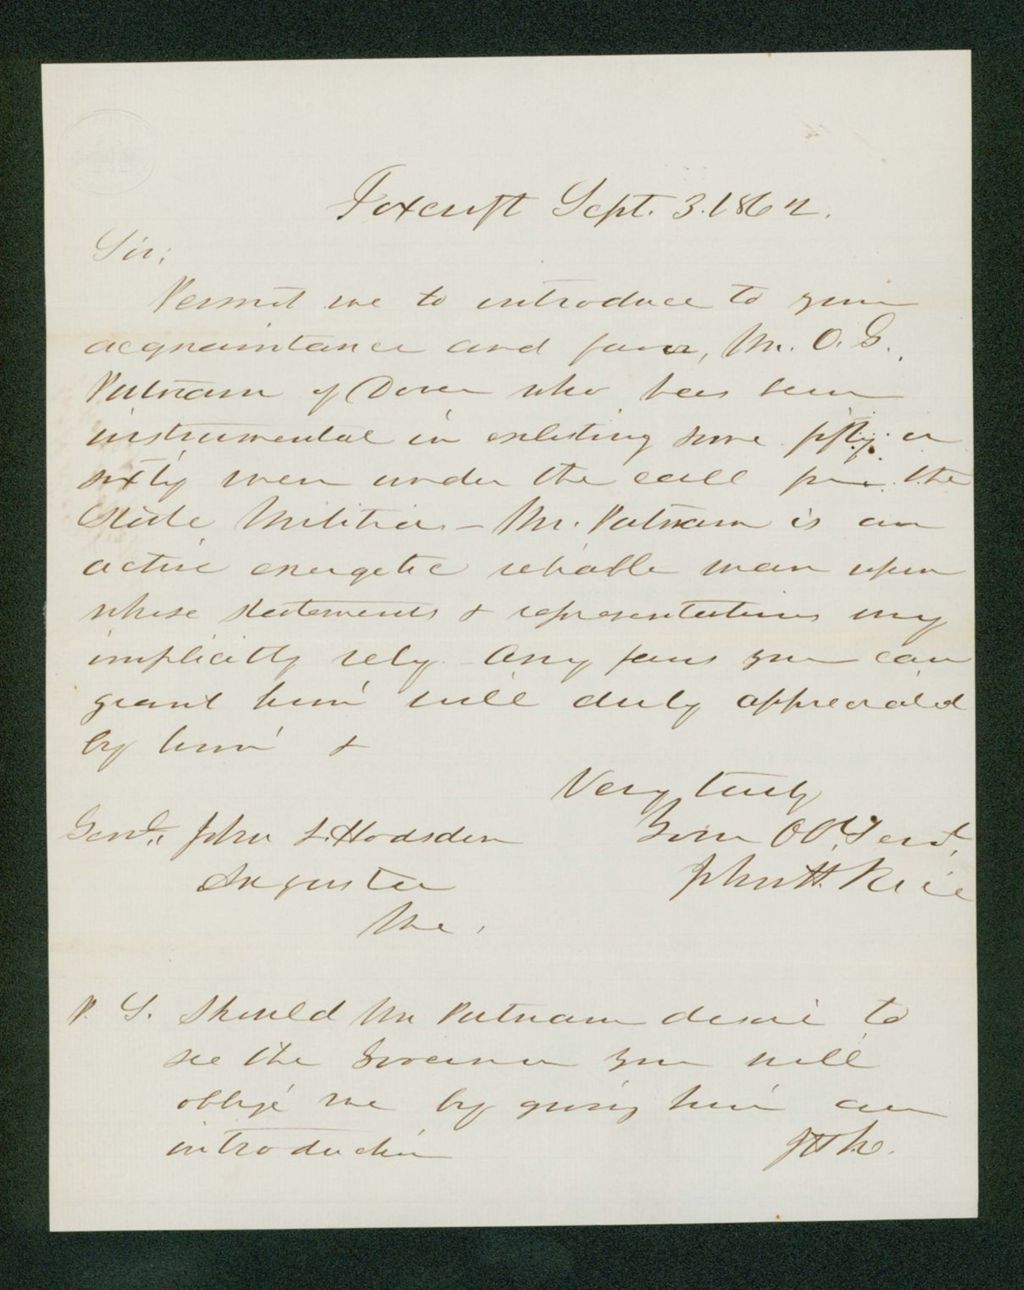 Foxcroft Sept. 3. 1862.
Sir;
Permit me to introduce to your
acquaintance and favor, Mr. O. G.
Putnam of Dover who has been
instrumental in enlisting some fifty or
sixty men under the call for the
State Militia - Mr. Putnam is an
active energetic reliable man upon
whose statements & representations my
implicitly rely Any favors you can
grant him will duly appreciated
by him &
Very truly
Your Ob. Servt.
John H. Rice
Genl. John L. Hodsdon
Augusta
Me.
P. S. Should Mr Putnam desire to
see the Governor you will
oblige me by giving him an
introduction
JHR.